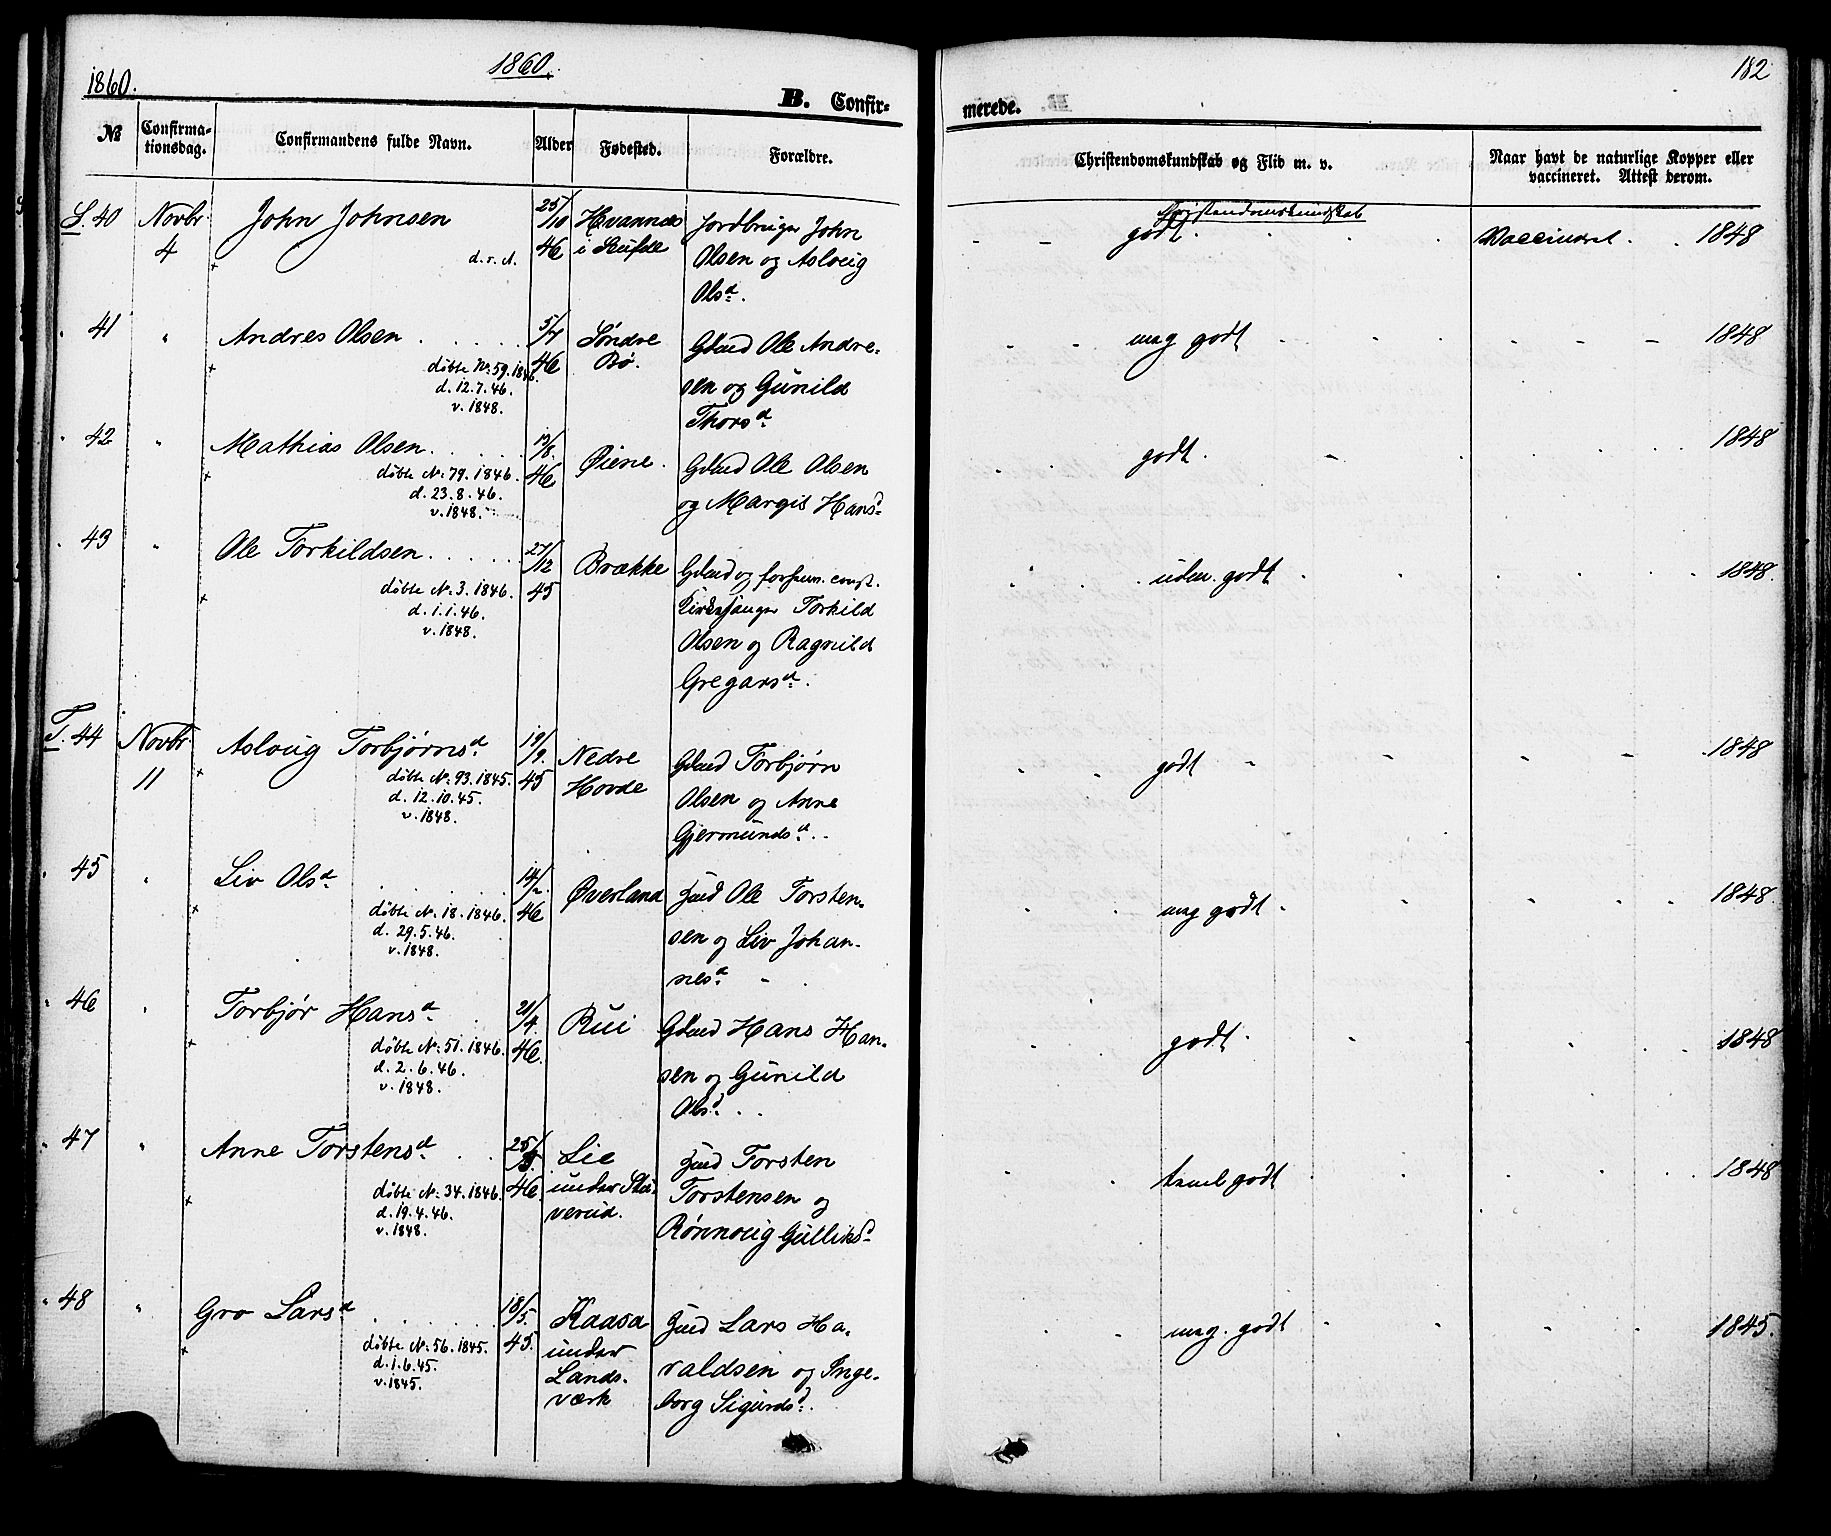 1860.
1860.
182
B. Confir-
merede.
№
Confirma-
tionsdag.
Confirmandens fulde Navn.
Alder
Fødested.
Forældre.
Christendomskundskab og Flid m. v.
Naar havt de naturlige Kopper eller
vaccineret. Attest derom.
40 Novbr. 4
John Johnsen
d. v. A.
25/10 46
Hvannes
i
Jordbruger John
Olsen og Asloug
Olsd.
Kristendomskundskab
godt.
Vaccineret 1848
41 "
Andres Olsen
døbte N: 59. 1846.
d. 12.7.46.
v. 1848.
46
Søndre
Bø.
Gbmd Ole Andre-
sen og Gunild
Thorsd.
meg godt
1848
42 "
Mathias Olsen
døbte N: 79. 1846.
d. 23.8.46.
v. 1848.
19/8. 46
Øiene.
Gbmd Ole Olsen
og Margit Hansd
godt.
1848
43 "
Ole Torkildsen
døbte N: 3. 1846.
d. 1.1.46.
v. 1848.
27/12 45
Brække
Gbmd og const.
Kirkesanger Torkild
Olsen og Ragnild
Gregarsd.
uden. godt
1848.
T. 44 Novbr. 11
Asloug Torbjørnsd.
døbte N: 93. 1845.
d. 12.10.45.
v. 1848.
19/9. 45
Nedre
Hovde
Gbmd Torbjørn
Olsen og Anne
Gjermundsd.
godt
1848
45 "
Liv Olsd.
døbte N: 18. 1846.
d. 29.5.46.
v. 1848.
14/2. 46
Øverland
Hmd Ole Torsten-
sen og Liv Johan-
nesd.
meg godt
1848.
46 "
Torbjør Hansd.
døbte N: 51. 1846.
d. 2.6.46.
v. 1848.
21/4. 46.
Rui
Gbmd Hans Han-
sen og Gunild
Olsd.
godt.
1848
47 "
Anne Torstensd.
døbte N: 34. 1846.
d. 19.4.46.
v. 1848.
46
Lie
under
verud.
Hmd Torsten
Torstensen og
Rønnoug Gulliksd.
temel godt
1848
48 "
Gro Larsd
døbte N: 56. 1845.
d. 1.6.45.
v. 1845.
18/5. 45.
Kaasa
under
Lands-
værk
Hmd Lars Ha-
raldsen og Inge-
borg Sigurdsd.
meg. godt
1845.